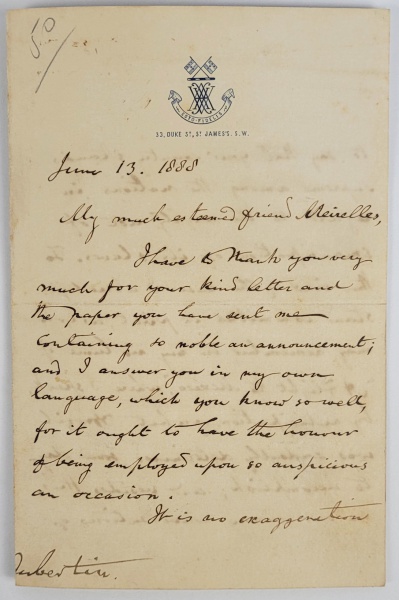 50
VOTO FIDELIS
33, DUKE ST, ST JAMES'S. S.W.
June 13. 1888
My much esteemed friend Meirelles,
I have to thank you very
much for your kind letter and
the paper you have sent me
containing so noble an announcement;
and I answer you in my own
language, which you know so well,
for it ought to have the honour
of being employed upon so auspicious
an occasion.
It is no exaggeration